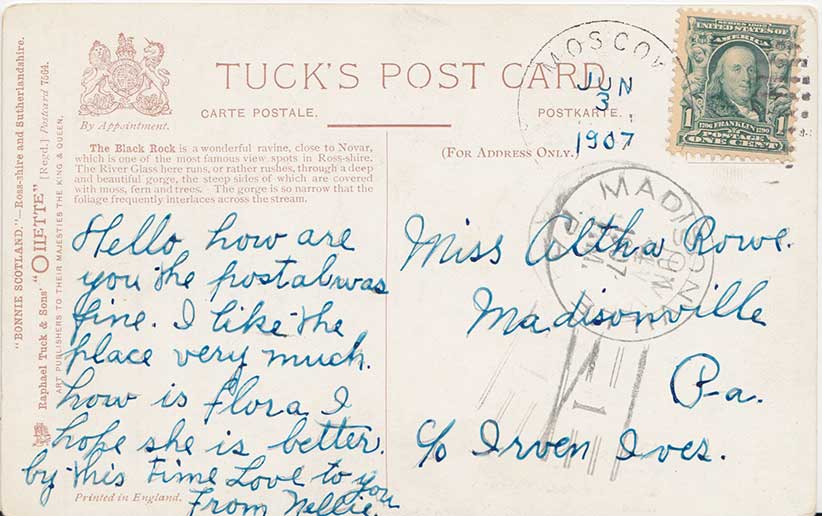 "BONNIE SCOTLAND."—Ross-shire and Sutherlandshire.
Raphael Tuck & Sons' "OILETTE" [Regd.] Postcard 7564.
ART PUBLISHERS TO THEIR MAJESTIES THE KING & QUEEN.
By Appointment.
TUCK'S POST CARD
CARTE POSTALE.
POSTKARTE.
(FOR ADDRESS ONLY.)
The Black Rock is a wonderful ravine, close to Novar,
which is one of the most famous view spots in Ross-shire.
The River Glass here runs, or rather rushes, through a deep
and beautiful gorge, the steep sides of which are covered
with moss, fern and trees. The gorge is so narrow that the
foliage frequently interlaces across the stream.
Hello how are
you the postal was
fine. I like the
place very much.
how is Flora I
hope she is better.
by this time Love to you
From Nellie.
Printed in England.
MOSCOW
JUN
3
1907
SERIES 1902
UNITED STATES OF
AMERICA
1 1706 FRANKLIN 1790 1
POSTAGE
ONE CENT
MADISON
1
Miss Altha Rowe.
Madisonville
Pa.
c/o Irven Ives.